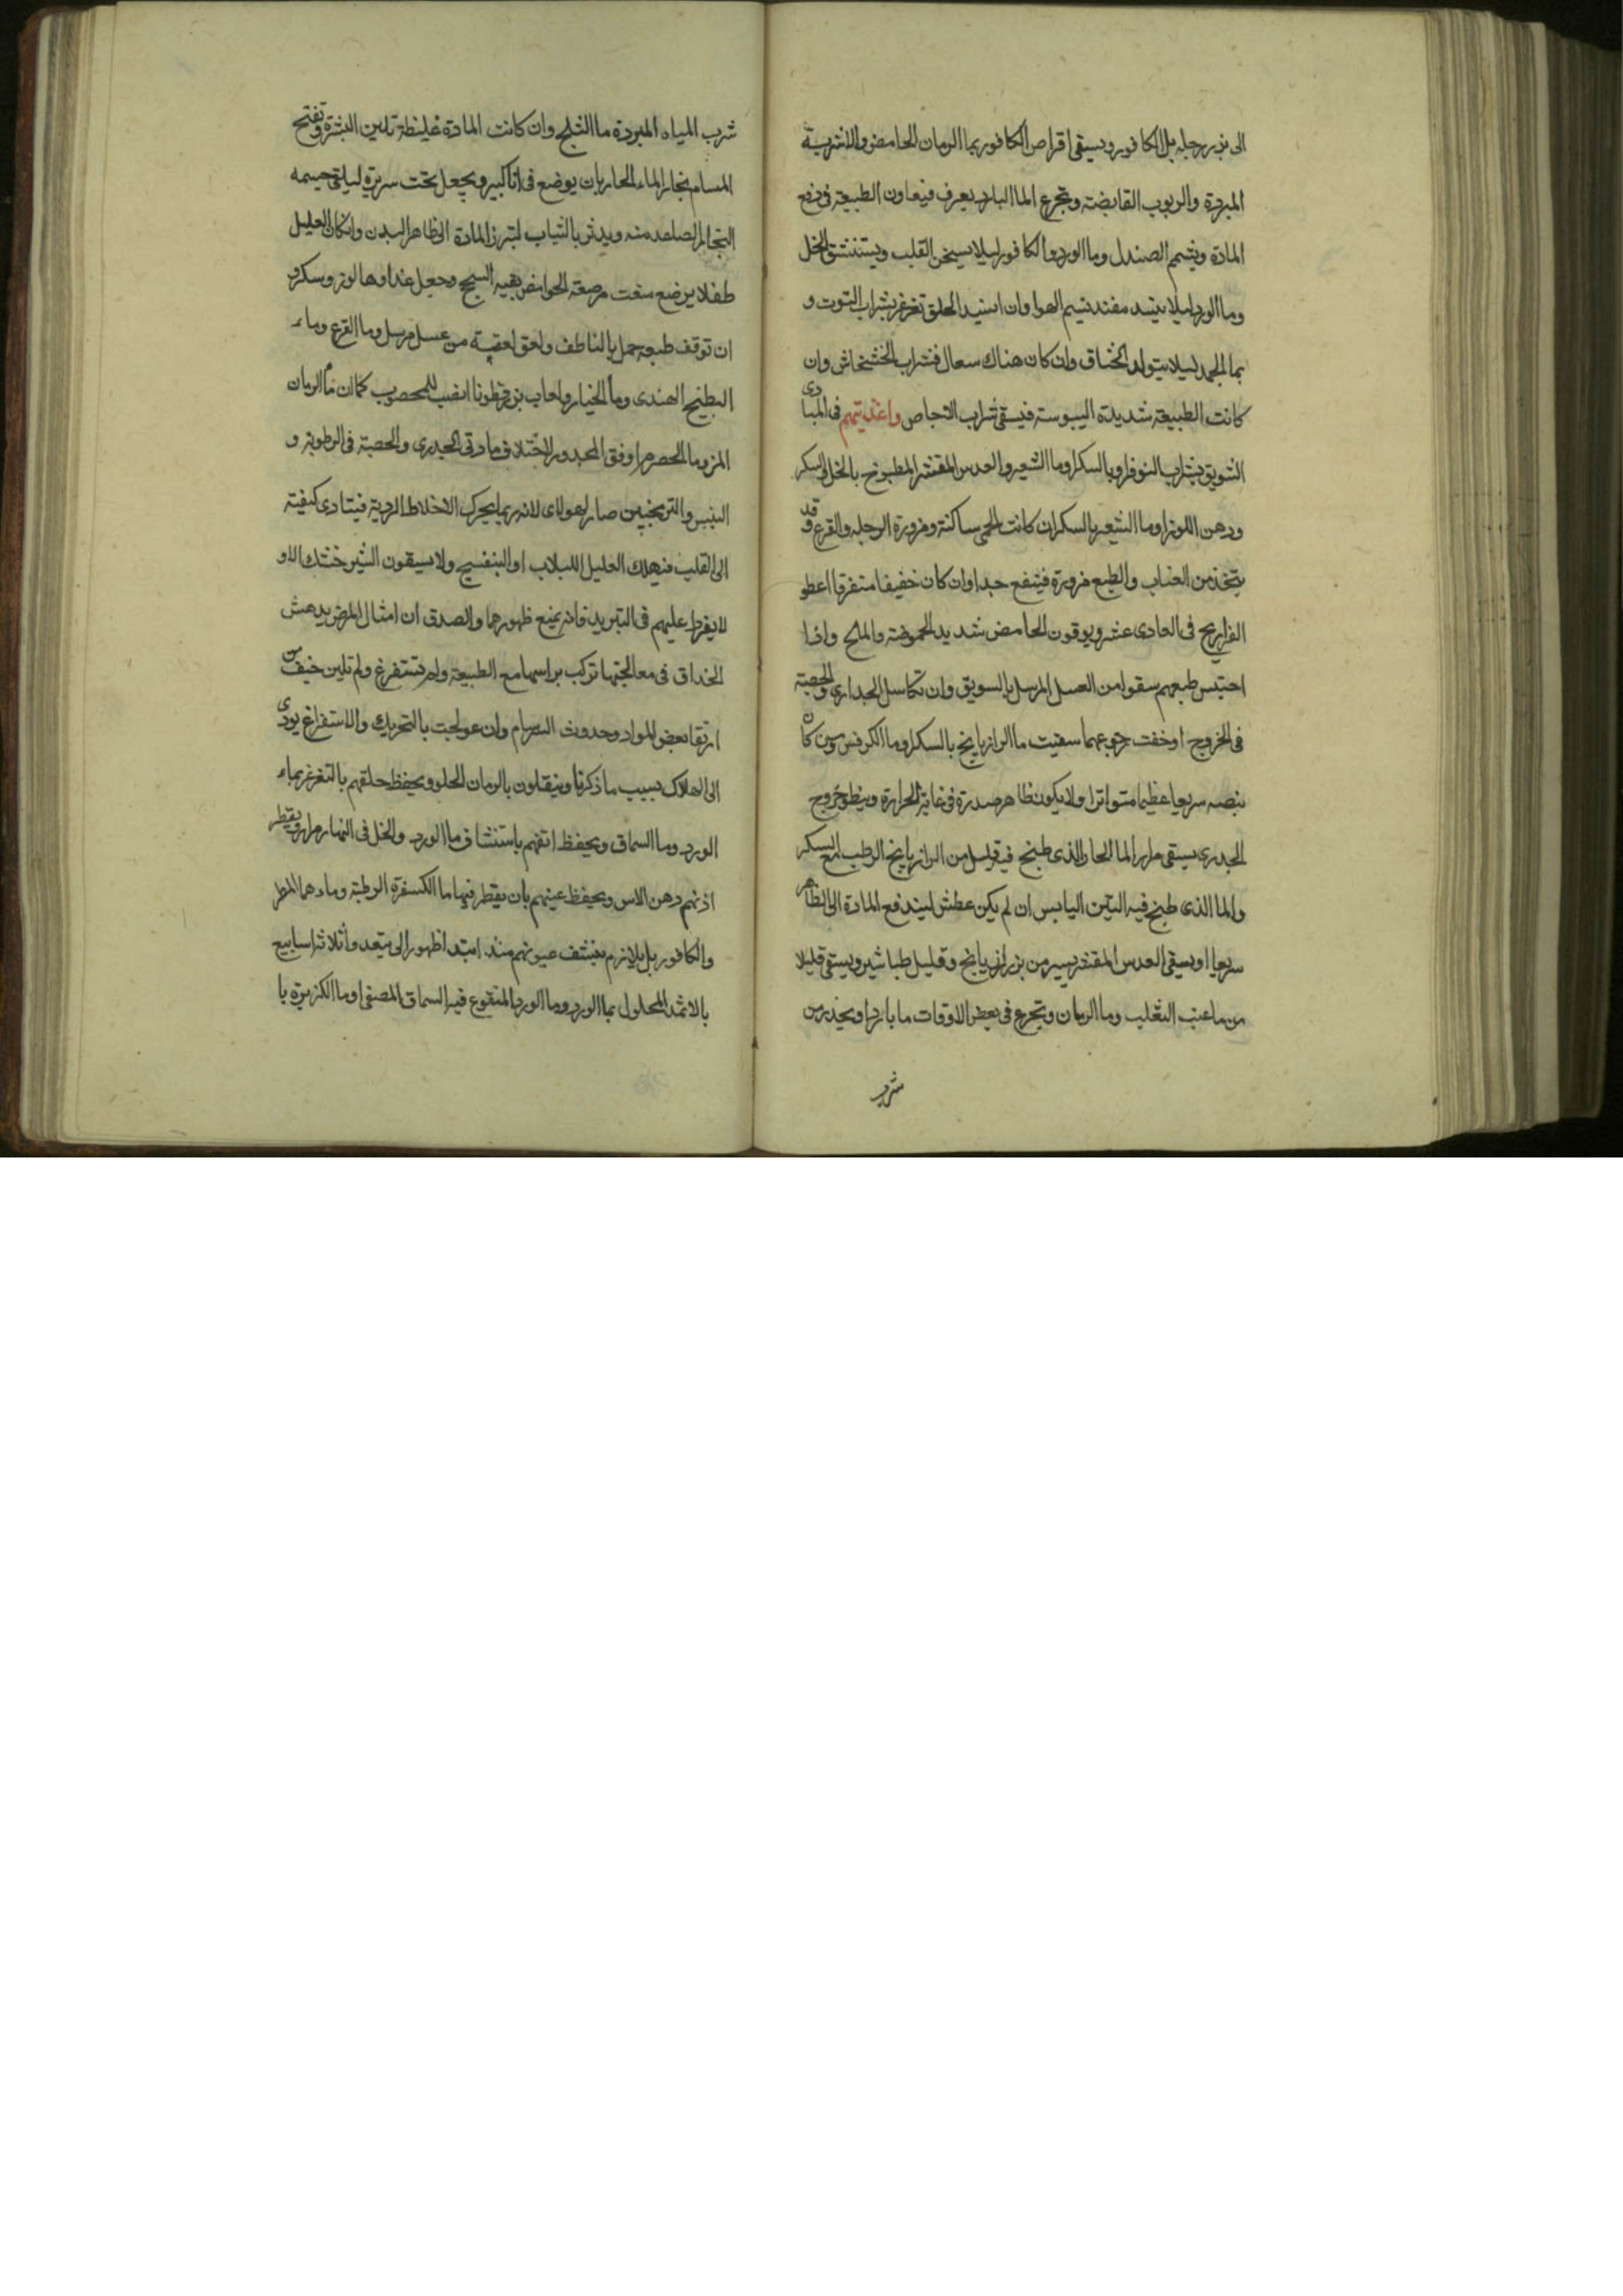 الى بزر رجله بل الكافور ويسقى اقراص الكافور بما الرمان الحامض والاشربة
المبردة والربوب القابضة وتجرع الما البارد يعرف فيعاون الطبيعة فى دفع
المادة ويشم الصندل وما الورد والكافور ليلا يسخن القلب ويستنشق الخل
وما الورد ليلا يفسد نسيم الهوا وان اشتد الحلق تغرغر بشراب التوت و
بما الجمد ليلا يتولد الخناق وان كان هناك سعال فشراب الخشخاش وان
كانت الطبيعة شديدة اليبوسة فيسقى شراب الاجاص واغذيتهم فى المبادى
السويق بشراب النوفر او بالسكر او ما الشعير والعدس المقشر المطبوخ بالخل والسكر
ودهن اللوز او ما الشعير بالسكر ان كانت الحمى ساكنة ومزورة الرجله والقرع وقد
يتخذ من العناب والطلع مزورة فينفع جدا وان كان خفيفا متفرقا اعطو
الفراريج فى الحادى عشر ويوقون الحامض شديد الحموضة والملح واذا
احتبس طبعهم سقوا من العسل المرسل بالسويق وان تكاسل الجدارى والحصبة
فى الخروج او خفت رجوعهما سقيت ما الرازيانج بالسكر او ما الكرفس ومن كان
نبضه سريعا عظيما متواترا ولا يكون ظاهر صدره فى غاية الحرارة ويبطو خروج
الجدرى يسقى مرار الما الحار الذى طبخ فيه قليل من الرازيانج الرطب مع السكر
والما الذى طبخ فيه التين اليابس ان لم يكن عطش ليندفع المادة الى الظاهر
سريعا او يسقى العدس المقشر يسير من بزر رازيانج وقليل طباشير ويسقى قليلا
من ما عنب الثعلب وما الرمان وتجرع فى بعض الاوقات ما باردا ويحذر من
شرب
شرب المياه المبردة ما الثلج وان كانت المادة غليظة تلين البشرة وتفتح
المسام بخار الماء الحار بان يوضع فى انا كبير ويجعل تحت سريره ليلتقى جسمه
البخار الصاعد منه ويدثر بالثياب لتبرز المادة الى ظاهر البدن وان كان العليل
طفلا يرضع منعت مرضعه الحوامض وجعل غذاوها لوز وسكر و
ان توقف طبعه حمل بالناطف ولعق لعقة من عسل مرسل وما القرع وماء
البطيخ الهندى وما الخيار ولعاب بزر قطونا انسب للمحصوب كما ان ما الرمان
المز وما الحصرم اوفق المجدور لاختلاف مادتى الجدرى والحصبة فى الرطوبة و
اليبس والترنجبين صار لهولاى لانه ربما يحرك الاخلاط الردية فيتادى كيفيته
الى القلب فيهلك العليل اللبلاب او البنفسج ولا يسقون الشير خشك الا و
لا يفرط عليهم فى التبريد فانه يمنع ظهورهما والصدق ان امثال المرض يدهش
الحذاق فى معالجتها تركب براسها مع الطبيعة ولم تستفرغ ولم تلين خيف من
ارتقا بعض المواد وحدوث السرسام وان عولجت بالتحريك والاستفراغ يودى
الى الهلاك بسبب ما ذكرنا ويتنقلون بالرمان الحلو ويحفظ حلقهم بالتغرغر بماء
الورد وما السماق ويحفظ انفهم باستنشاق ما الورد والخل فى النهار مرار ويقطر
اذنهم دهن الاس ويحفظ عينهم بان يقطر فيها ما الكسفرة الرطبة وما
والكافور بل يلازم عيونهم منذ ابتدا ظهور الى بعد واثلاثة اسابيع
بالاثمد المحلول بما الورد وما الورد المنقوع فيه السماق المصفى او ما الكزبرة با